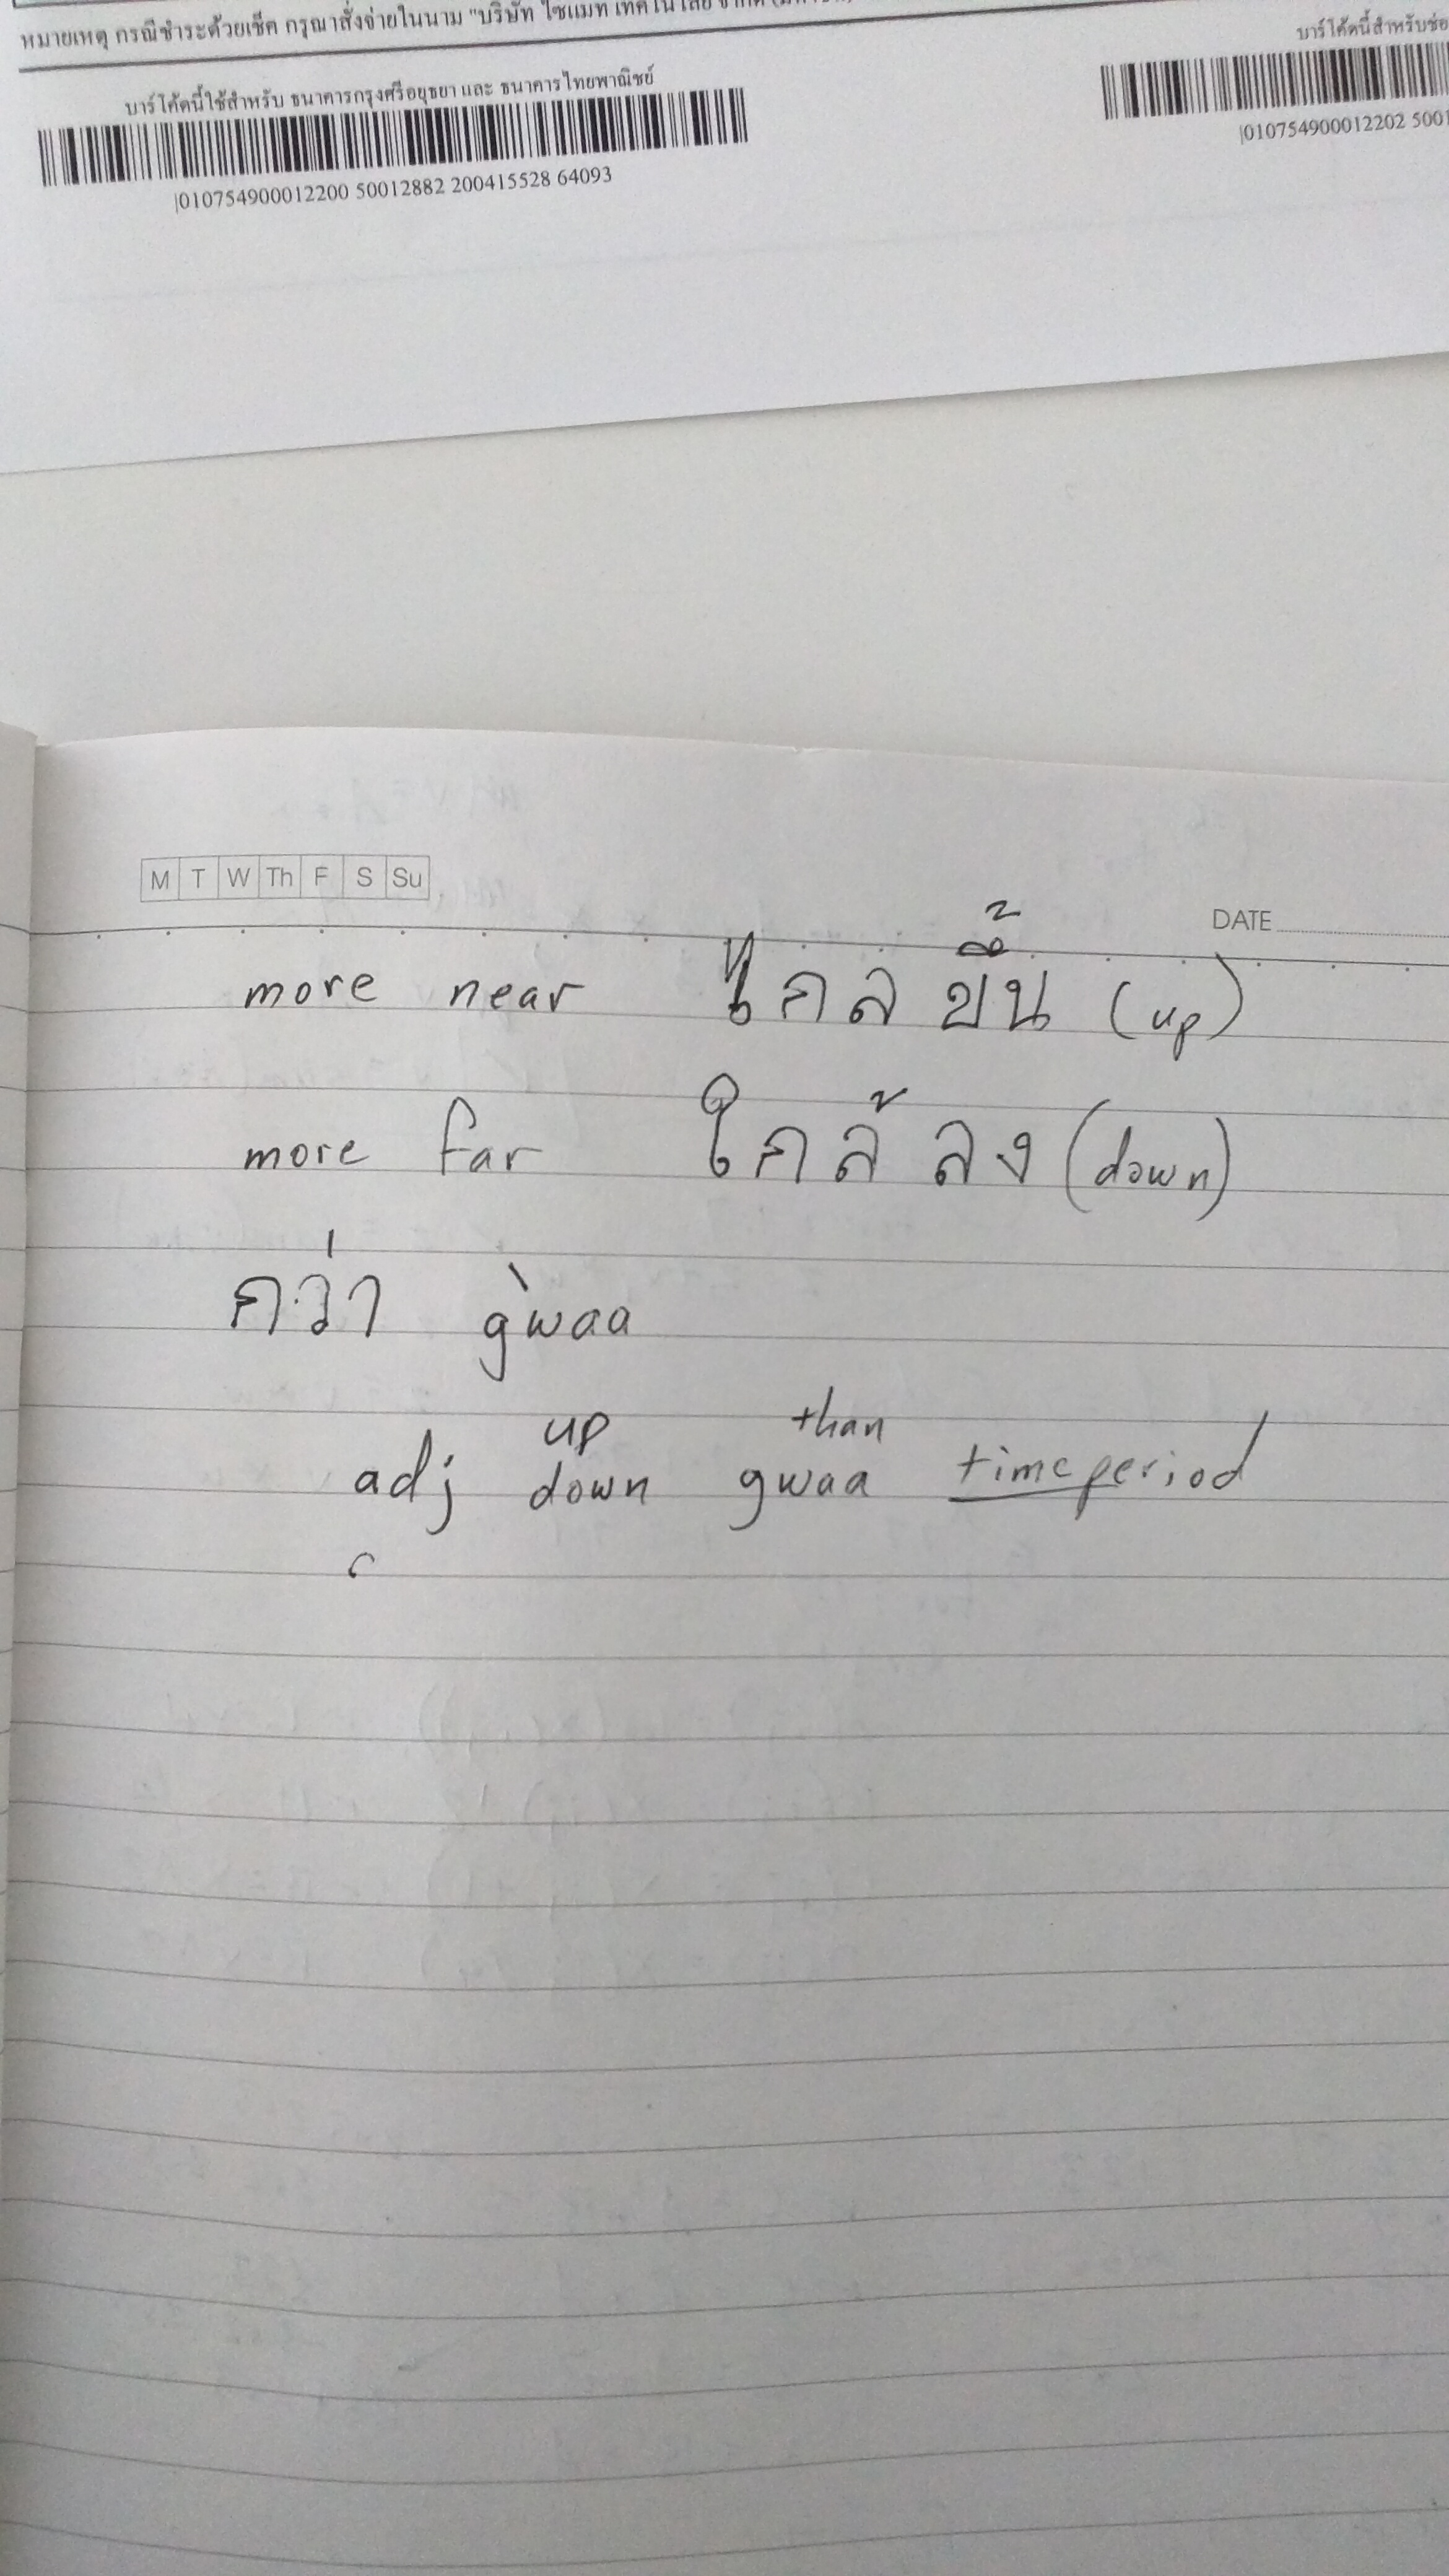 หมายเหตุ กรณีชำระด้วยเช็ค กรุณาสั่งจ่ายในนาม "บริษัท ไซแมท เทคโนโลยี จำกัด
บาร์โค้ดนี้ใช้สำหรับ ธนาคารกรุงศรีอยุธยา และ ธนาคารไทยพาณิชย์
|010754900012200 50012882 200415528 64093
บาร์โค้ดนี้สำหรับช่อ
|010754900012202 5001
M T W Th F S Su
DATE
more near ไกล ขึ้น (up)
more far ใกล้ ลง (down)
กว่า gwàa
up than
adj down gwaa timeperiod